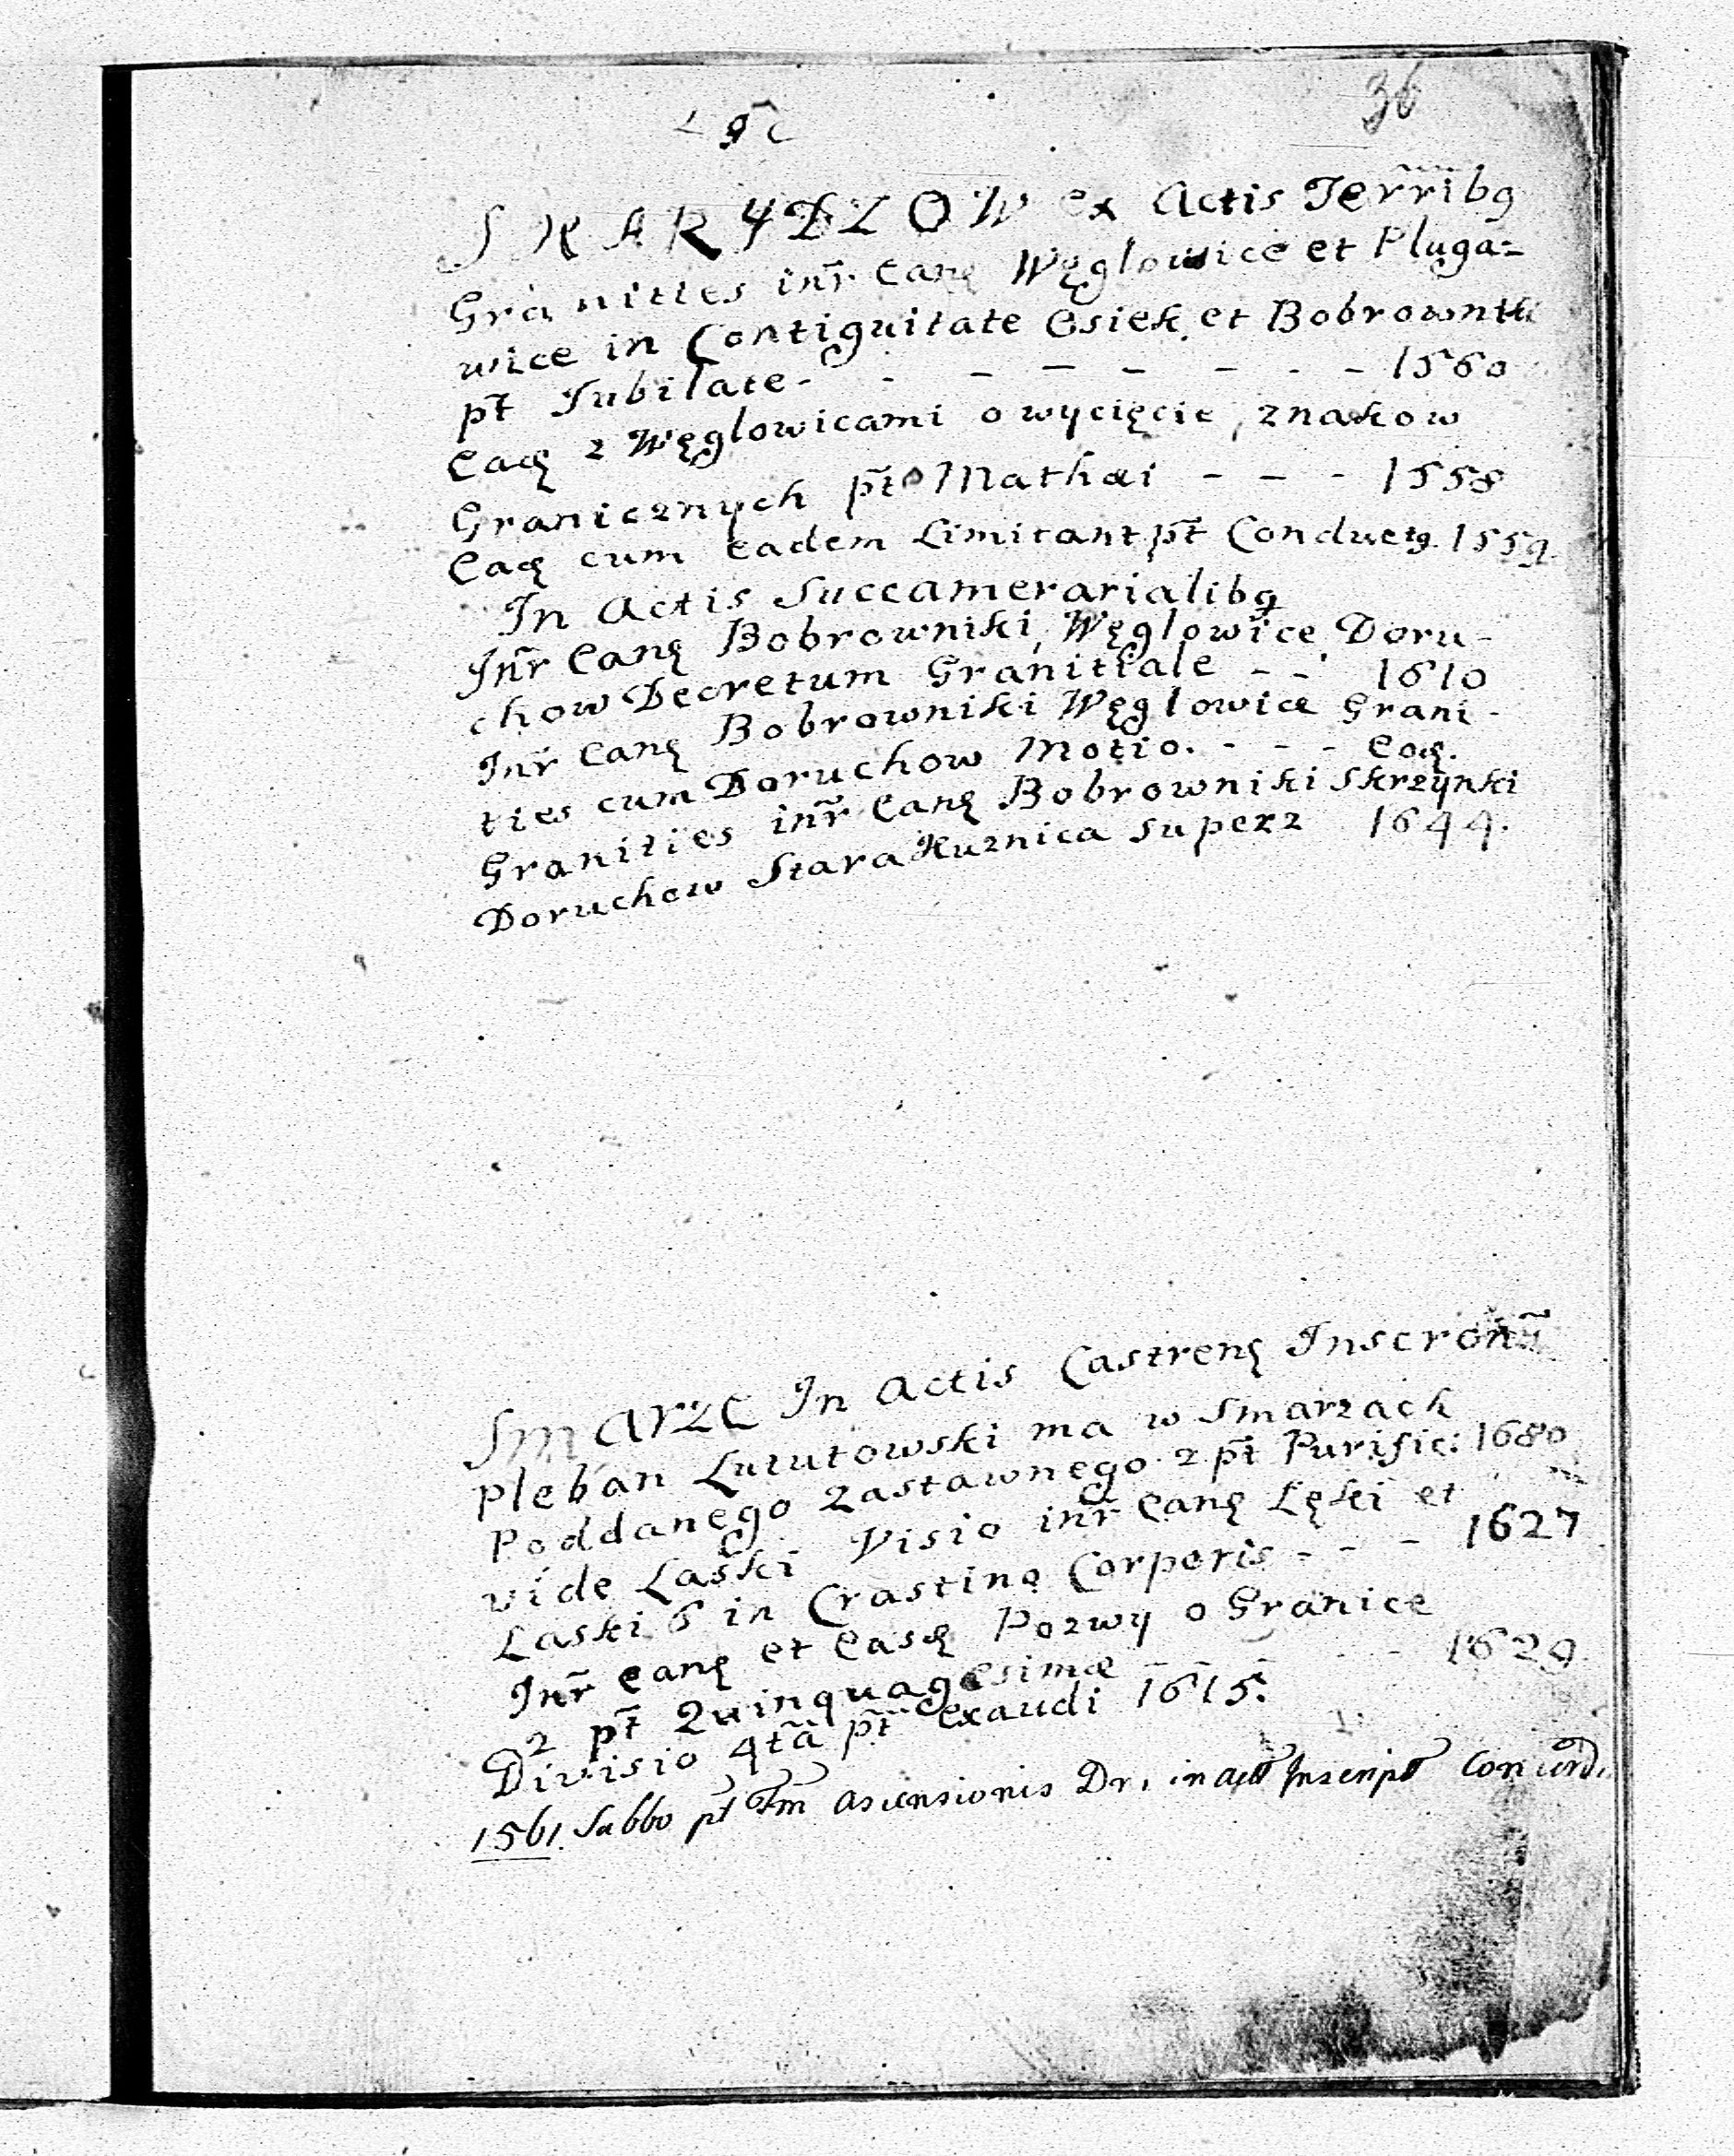 36
SKARYDZOW ex Actis Terribq
Granities inr̃ Eanę Węglowice et Pluga=
wice in Contiguitate Osiek et Bobrownki
pt̃ Jubilate - - - - - - - 1560
Eadę z Węglowicami o wycięcie znakow
Granicznych pt̃o Mathæi - - - 1558
Eadę cum Eadem Limitant pt̃ Conductq. 1559.
In Actis Succamerarialibq
Inr̃ Eanę Bobrowniki, Węglowice Doru-
chow Decretum Granitiale - - 1610
Inr̃ Eanę Bobrowniki Węglowice Grani-
ties cum Doruchow Motio. - - - Eodę.
Granities inr̃ Eanę Bobrowniki Skrzynki
Doruchow Stara Kuznica super 2 1644.
SmArZE In Actis Castrenę Inscroñ
Pleban Lututowski ma w Smarzach
Poddanego Zastawnego 2 pt̃ Purific: 1680
vide Laski Visio inr̃ Eanę Lęki et
Laski 6 in Crastino Corporis - - - 1627
Inr̃ eanę et Easdę Pozwy o Granice
2 pt̃ Quinquagesimæ - - - - - 1629.
Divisio 4tã pt̃ Exaudi 1615.
1561. Sabbo pt̃ Fm̃ Ascensionis Dni in